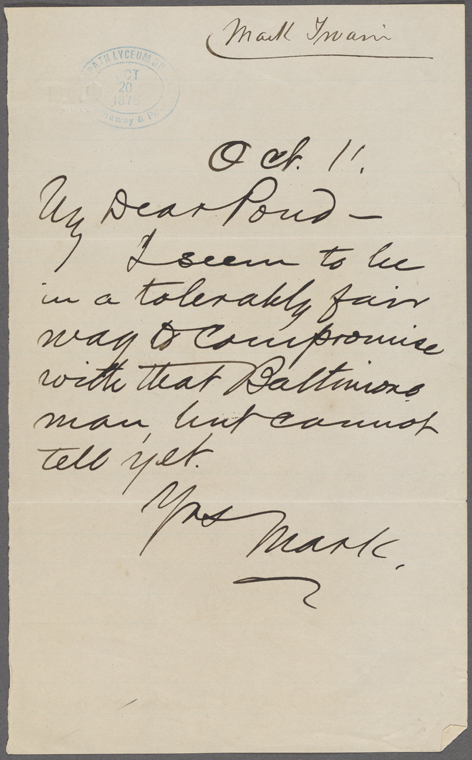 Mark Twain
LYCEUM
20
Oct. 11.
My Dear Pond —
I seem to be
in a tolerably fair
way to compromise
with that Baltimore
man, but cannot
tell yet.
Yrs
Mark.